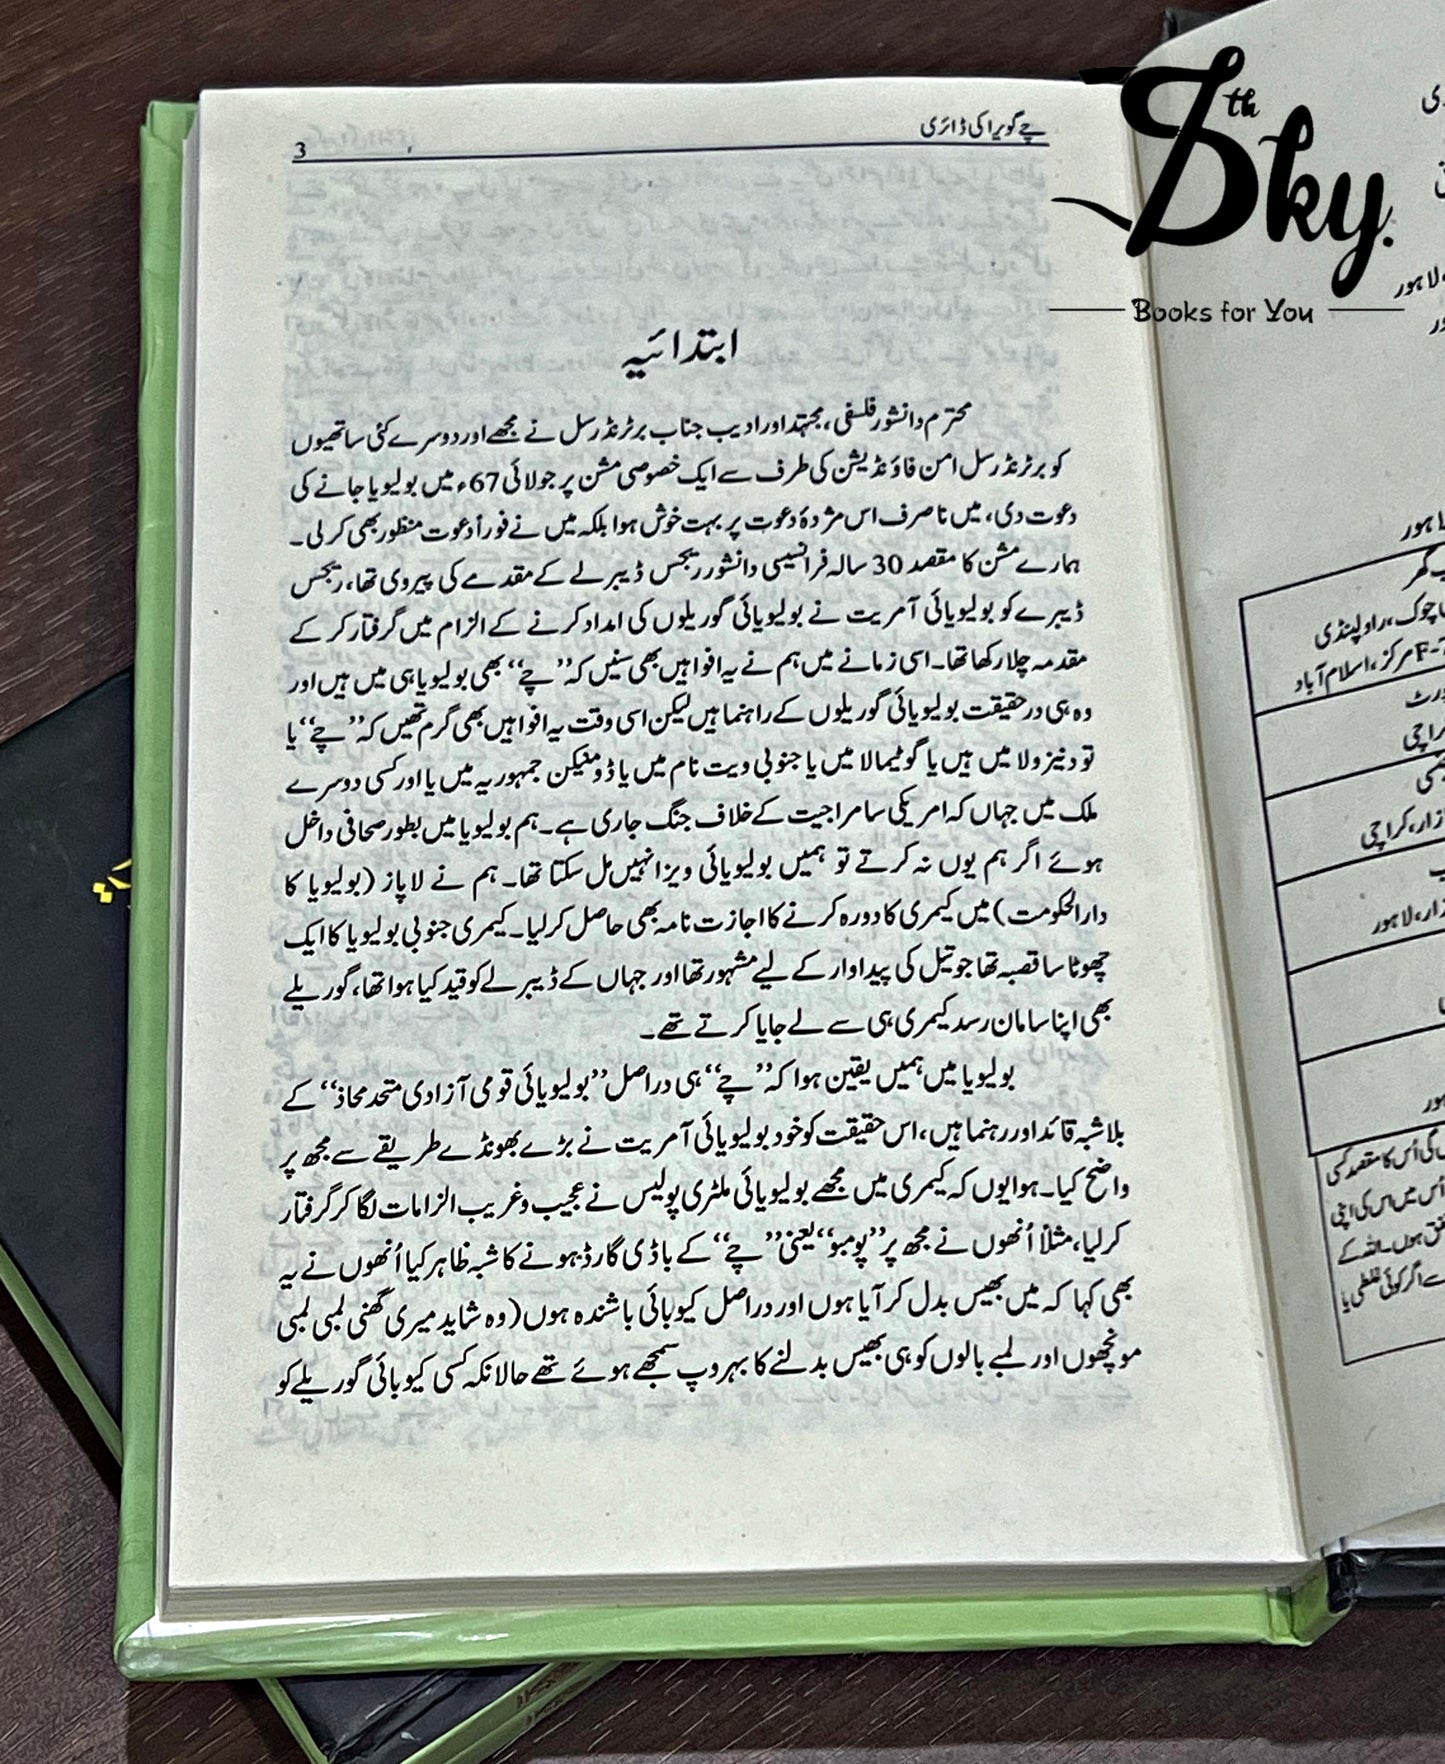 چے گویرا کی ڈائری
3
ابتدائیہ
محترم دانشور فلسفی، مجتہد اور ادیب جناب برٹرنڈ رسل نے مجھے اور دوسرے کئی ساتھیوں
کو برٹرنڈ رسل امن فاؤنڈیشن کی طرف سے ایک خصوصی مشن پر جولائی 67ء میں بولیویا جانے کی
دعوت دی، میں نا صرف اس مژدۂ دعوت پر بہت خوش ہوا بلکہ میں نے فوراً دعوت منظور بھی کر لی۔
ہمارے مشن کا مقصد 30 سالہ فرانسیسی دانشور ریجس ڈیبرلے کے مقدمے کی پیروی تھا، ریجس
ڈیبرے کو بولیویائی آمریت نے بولیویائی گوریلوں کی امداد کرنے کے الزام میں گرفتار کر کے
مقدمہ چلا رکھا تھا۔ اسی زمانے میں ہم نے یہ افواہیں بھی سنیں کہ ’’چے‘‘ بھی بولیویا ہی میں ہیں اور
وہ ہی درحقیقت بولیویائی گوریلوں کے راہنما ہیں لیکن اسی وقت یہ افواہیں بھی گرم تھیں کہ ’’چے‘‘ یا
تو ونیزولا میں ہیں یا گوٹیمالا میں یا جنوبی ویت نام میں یا ڈومنیکن جمہوریہ میں یا اور کسی دوسرے
ملک میں جہاں کہ امریکی سامراجیت کے خلاف جنگ جاری ہے۔ ہم بولیویا میں بطور صحافی داخل
ہوئے اگر ہم یوں نہ کرتے تو ہمیں بولیویائی ویزا نہیں مل سکتا تھا۔ ہم نے لاپاز (بولیویا کا
دارالحکومت) میں کیمری کا دورہ کرنے کا اجازت نامہ بھی حاصل کر لیا۔ کیمری جنوبی بولیویا کا ایک
چھوٹا سا قصبہ تھا جو تیل کی پیداوار کے لیے مشہور تھا اور جہاں کے ڈیبرلے کو قید کیا ہوا تھا، گوریلے
بھی اپنا سامان رسد کیمری ہی سے لے جایا کرتے تھے۔
بولیویا میں ہمیں یقین ہوا کہ ’’چے‘‘ ہی دراصل ’’بولیویائی قومی آزادی متحد محاذ‘‘ کے
بلاشبہ قائد اور رہنما ہیں، اس حقیقت کو خود بولیویائی آمریت نے بڑے بھونڈے طریقے سے مجھ پر
واضح کیا۔ ہوا یوں کہ کیمری میں مجھے بولیویائی ملٹری پولیس نے عجیب و غریب الزامات لگا کر گرفتار
کر لیا، مثلاً اُنھوں نے مجھ پر ’’پومبو‘‘ یعنی ’’چے‘‘ کے باڈی گارڈ ہونے کا شبہ ظاہر کیا اُنھوں نے یہ
بھی کہا کہ میں بھیس بدل کر آیا ہوں اور دراصل کیوبائی باشندہ ہوں (وہ شاید میری گھنی لمبی لمبی
مونچھوں اور لمبے بالوں کو ہی بھیس بدلنے کا بہروپ سمجھے ہوئے تھے حالانکہ کسی کیوبائی گوریلے کو
Sky
th
Books for You
لاہور
لاہور
چوک، راولپنڈی
F-7 مرکز، اسلام آباد
کراچی
کراچی
لاہور
گی اُس کا مقصد کسی
اُس میں اس کی اپنی
ہوں۔ اللہ کے
اگر کوئی غلطی یا